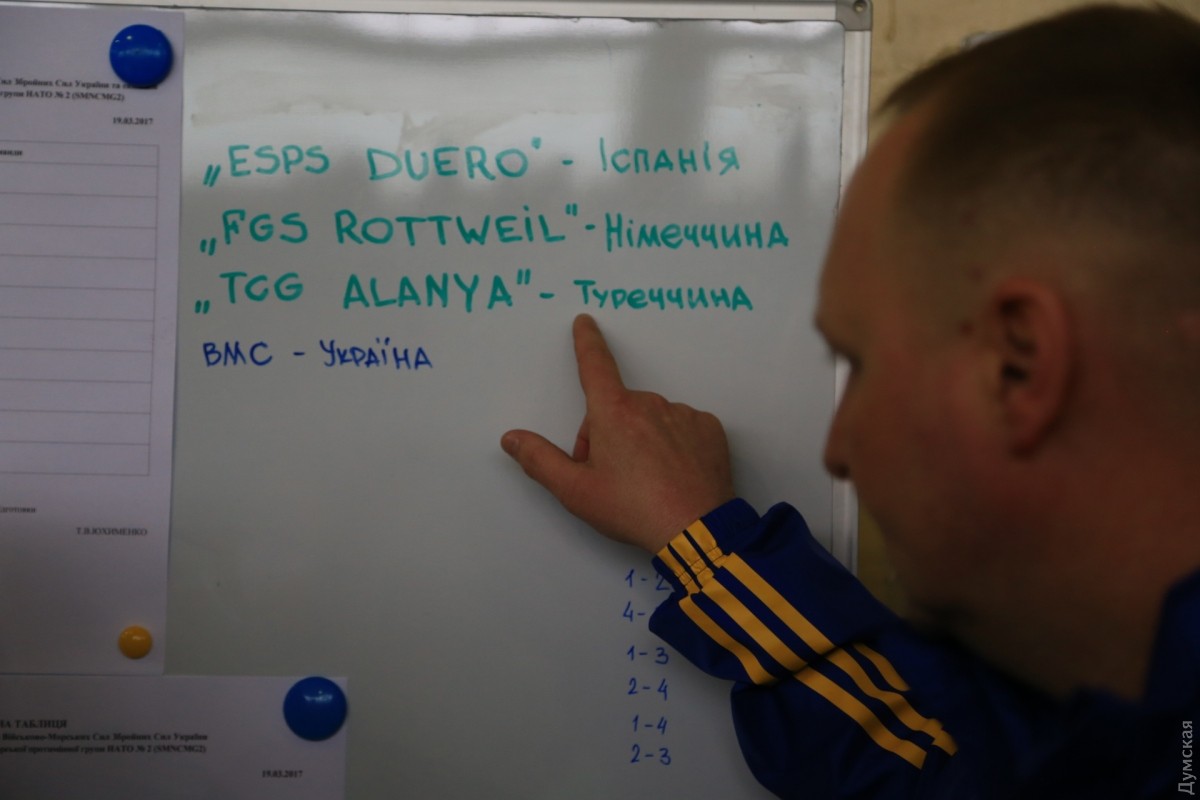 Сил Збройних Сил України та
групи НАТО № 2 (SMNCMG2)
19.03.2017
„ESPS DUERO" - Іспанія
„FGS ROTTWEIL" - Німеччина
„TCG ALANYA" - Туреччина
ВМС - Україна
Т.В.ЮХИМЕНКО
1-2
4-
1-3
2-4
1-4
2-3
ТАБЛИЦЯ
Військово-Морських Сил Збройних Сил України
протимінної групи НАТО № 2 (SMNCMG2)
19.03.2017
Думская